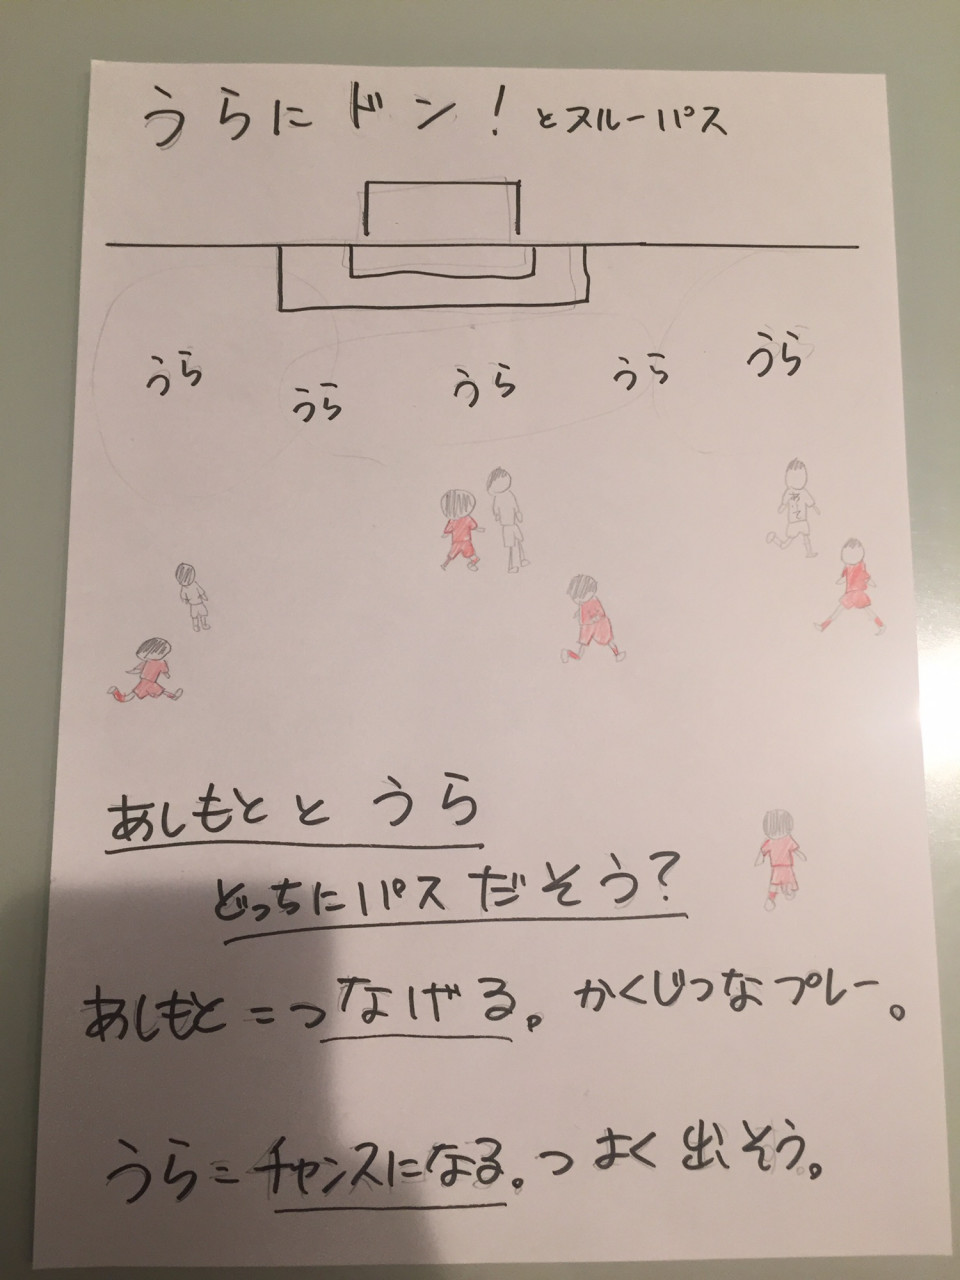 うらにドン！とスルーパス
うら
うら
うら
うら
うら
あいて
あしもととうら
どっちにパスだそう？
あしもと＝つなげる。かくじつなプレー。
うら＝チャンスになる。つよく出そう。